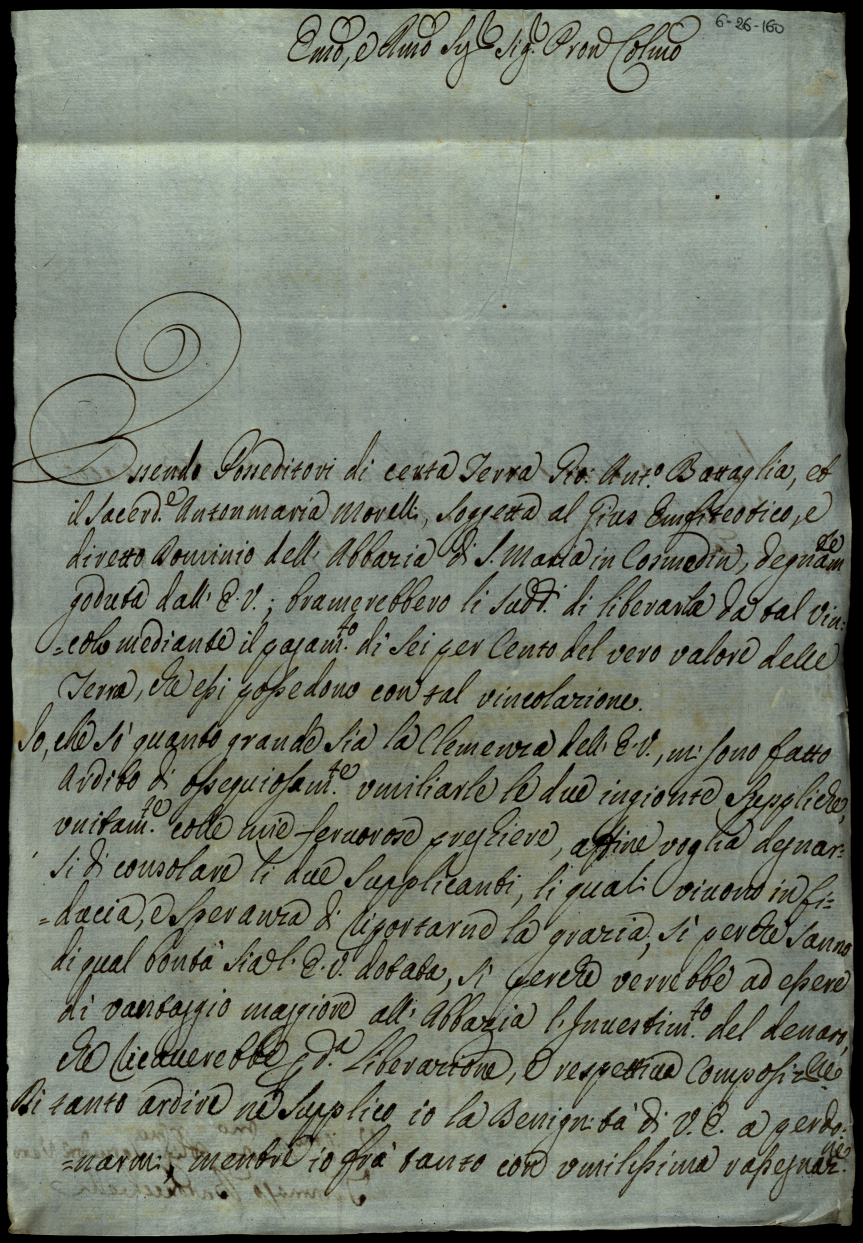 6-26-160
Emo, e Rmo Sigre Sigr Pron Colmo
Essendo Posseditori di certa Terra Gio: Anto Battaglia, et
il Sacerde Antonmaria Morelli, soggetta al Gius Emfiteotico, e
diretto Dominio dell' Abbazia di S. Maria in Cosmedin, degnamte
goduta dall' E.V.; bramerebbero li sudd.i di liberarla da tal vin:
=colo mediante il pagamto di sei per Cento del vero valore delle
Terre, che essi possedono con tal vincolazione.
Io, che sò quanto grande sia la Clemenza dell' E.V., mi sono fatto
ardito di ossequiosamte vmiliarle le due ingionte suppliche,
vnitamte colle mie fervorose preghiere, affine voglia degnar=
si di consolare li due supplicanti, li quali viuono in fi=
=ducia, e speranza di riportarne la grazia, sì perche sanno
di qual bontà sia l' E.V. dotata, sì perche verrebbe ad essere
di vantaggio maggiore all' Abbazia l' Inuestimto del denaro,
che riceuerebbe p da Liberazione, e respettiua Composizne
Di tanto ardire ne supplico io la Benignità di V.E. a perdo:
=narmi, mentre io frà tanto con vmilissima rassegnazne